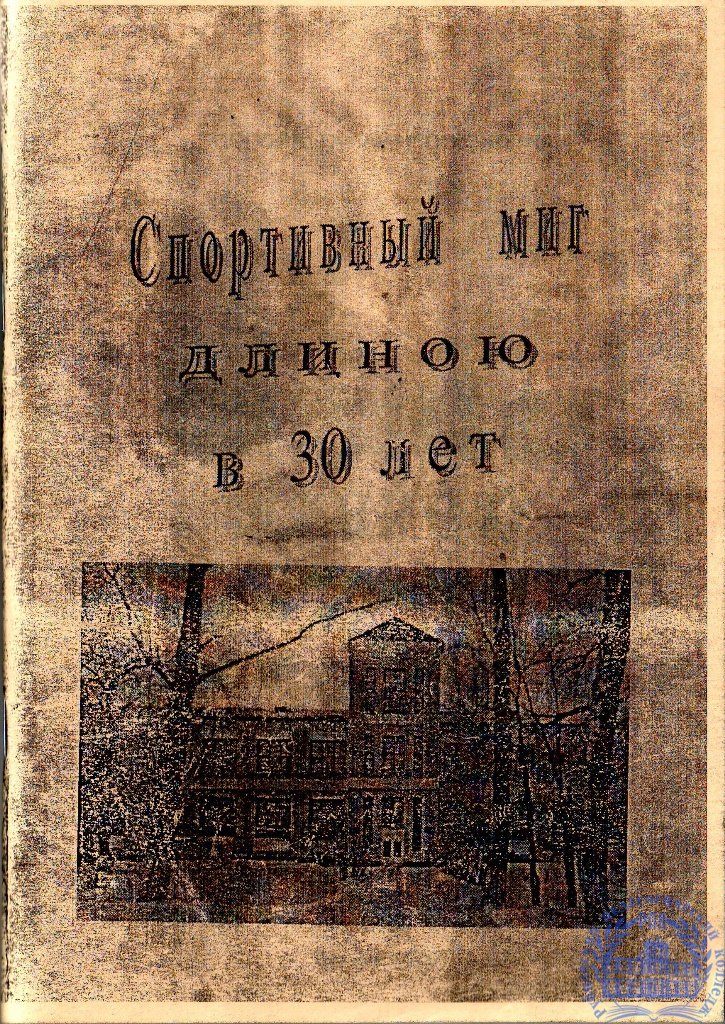 Спортивный миг
длиною
в 30 лет